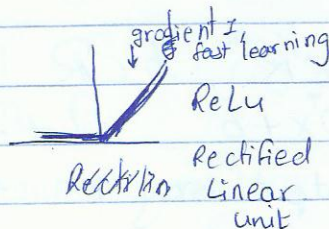 gradient 1,
fast learning
ReLu
Rectified
Linear
unit